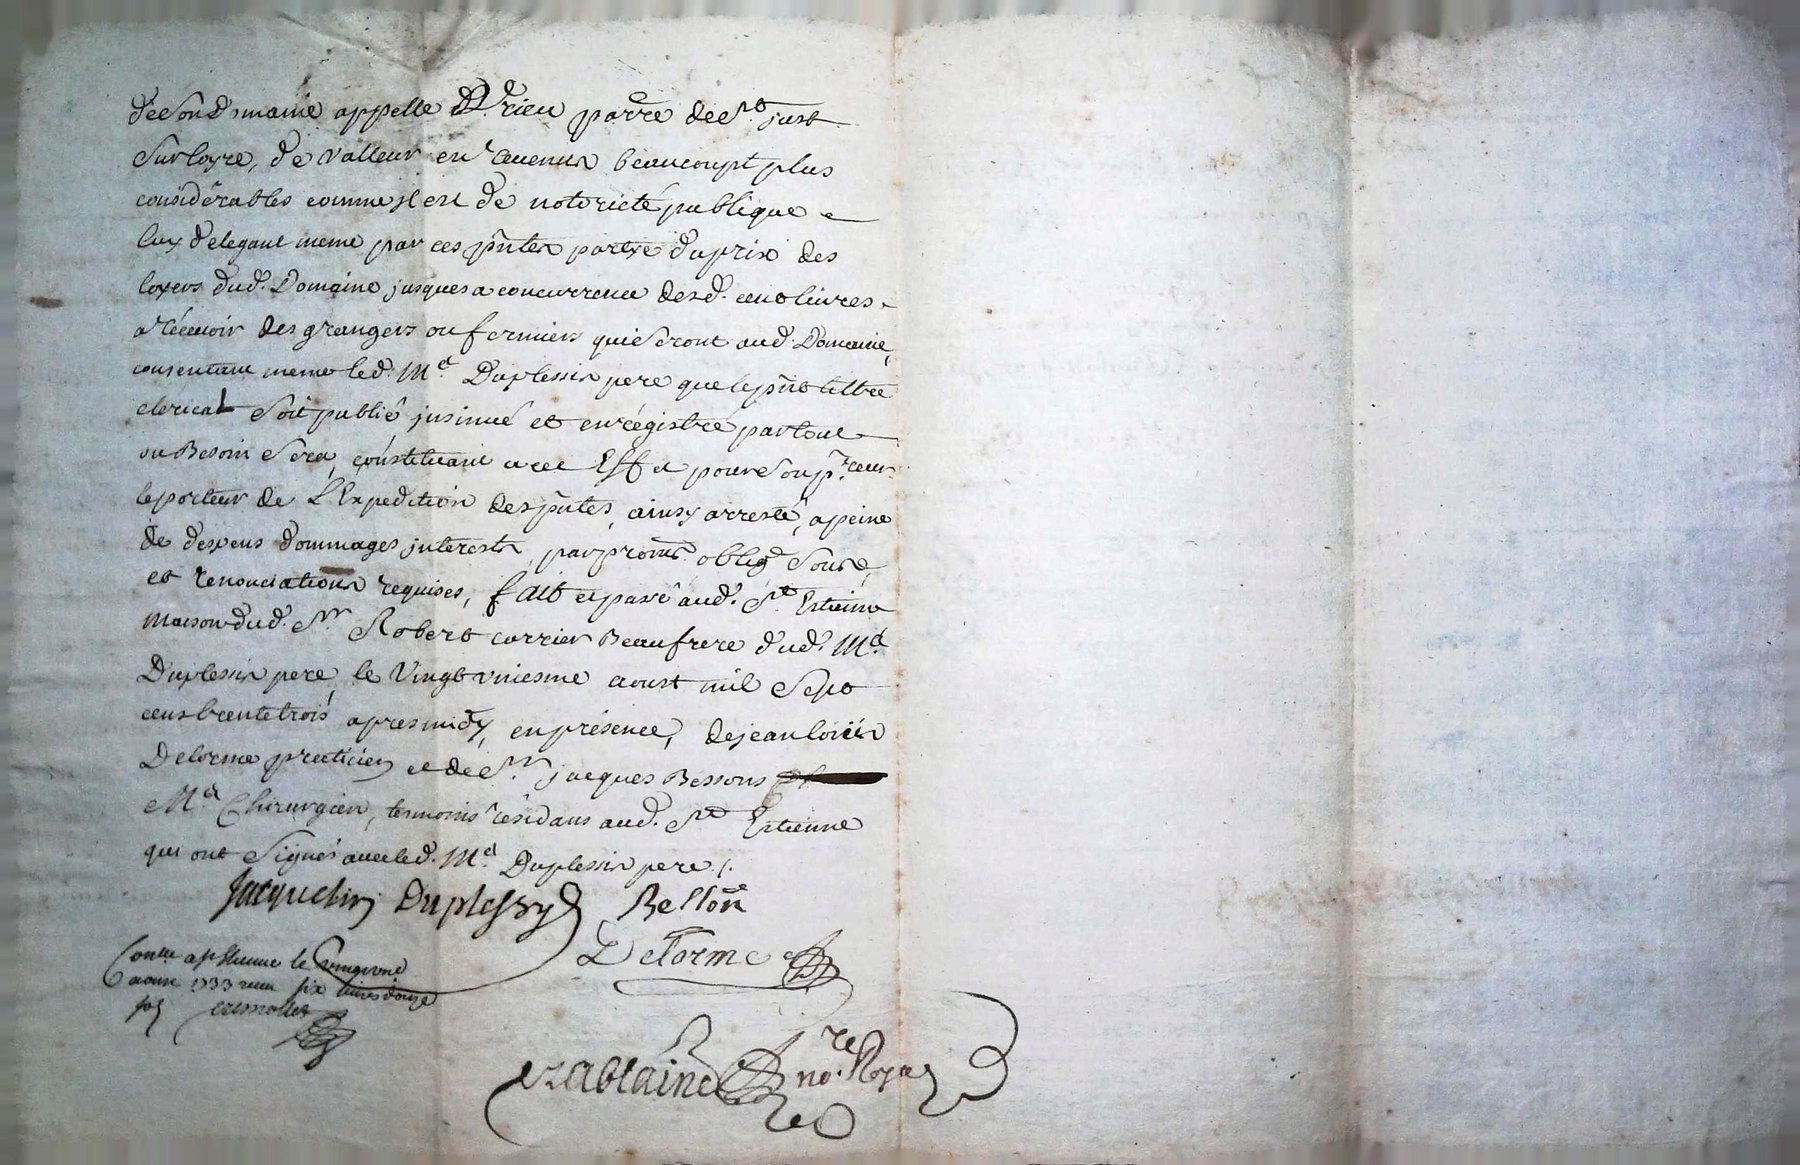 de son domaine appellé Drieu parre de St. just
sur loyre, de valleur en revenus beaucoupt plus
considérables comme jl est de notorieté publique
luy delegant meme par ces pñtes partye du prix des
loyers dud. Domaine jusques a concurrence desd. cent livres
a recevoir des grangers ou fermiers qui seront aud. Domaine,
consentant meme led. Md. Duplessis pere que le pñt tiltre
clerical soit publié jnsinué et enrégistré partout
ou Besoin sera, constituant a cet Effet pour son pr. ceur
le porteur de L'Expedition des pñtes, ainsy arresté, a peine
de despens dommages jnterests, par prom. oblig. soub.
et renonciations requises, fait et passé aud. St. Estienne
maison dud. Sr. Robert carrier Beaufrere dud. Md.
Duplessis pere, le vingt uniesme aoust mil sept
cens trente trois apres midy, en présence, de jean loüis
Delorme praticien et de Sr. jacques Bessons
Md. Chirurgien, temoins résidans aud. St. Estienne
qui ont signés avec led. Md. Duplessis pere /.
Jacquelin Duplessy Besson
Delorme
Con.lle a St Etienne le vingt une
aoust 1733 recu six livres douze
sols
Lablaine no.re Royal